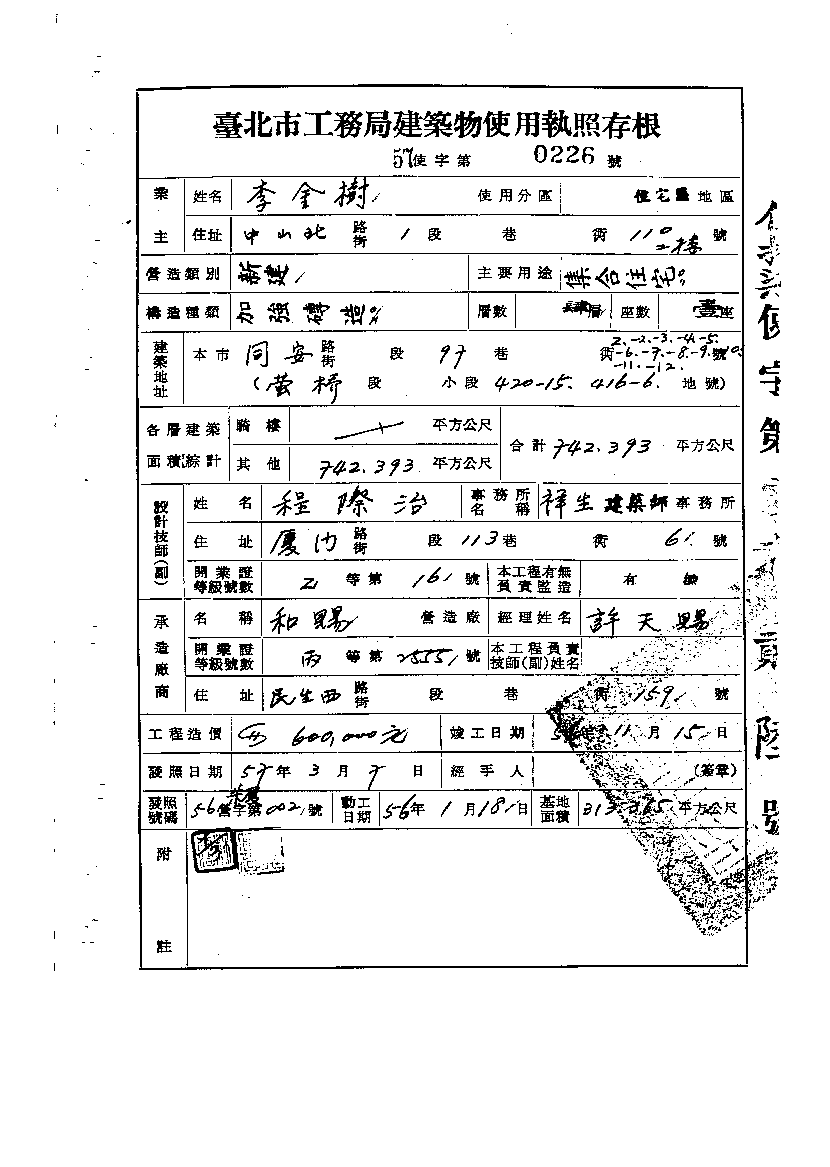 臺北市工務局建築物使用執照存根
57使字第 0226 號
業主 姓名 李金樹 使用分區 住宅區地區
住址 中山北路街 1段 巷 街 110號 二樓
營造類別 新建 主要用途 集合住宅
構造種類 加強磚造 層數 肆層 座數 壹座
建築地址 本市同安路街 段 97巷 街 2.-2.-3.-4.-5.
-6.-7.-8.-9.號10.
-11.-12.
(螢橋段 小段 420-15. 416-6. 地號)
各層建築面積綜計 騎樓 平方公尺 合計742.393平方公尺
其他 742.393 平方公尺
設計技師(副) 姓名 程際治 事務所名稱 祥生建築師事務所
住址 廈門路街 段 113巷 街 61號
開業證等級號數 乙等第 161號 本工程有無負責監造 有
承造廠商 名稱 和賜 營造廠 經理姓名 許天賜
開業證等級號數 丙等第 2555號 本工程負責技師(副)姓名
住址 民生西路街 段 巷 街 159號
工程造價 600,000元 竣工日期 56年11月15日
發照日期 57年3月7日 經手人 (簽章)
發照號碼 56營字第002號 動工日期 56年1月18日 基地面積 313.365平方公尺
附註
使字第
貳陸號